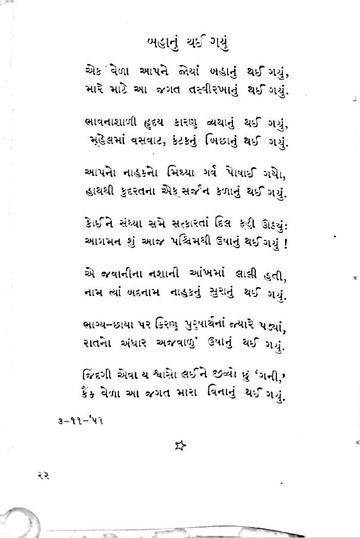 બહાનું થઈ ગયું
એક વેળા આપને જોયાં બહાનું થઈ ગયું,
મારે માટે આ જગત તસ્વીરખાનું થઈ ગયું.
ભાવનાશાળી હૃદય કારણ વ્યથાનું થઈ ગયું,
મ્હેલમાં વસવાટ, કંટકનું બિછાનું થઈ ગયું.
આપનો નાહકનો મિથ્યા ગર્વ પોષાઈ ગયો,
હાથથી કુદરતના એક સર્જન કળાનું થઈ ગયું.
કોઈને સંધ્યા સમે સત્કારતાં દિલ કહી ઊઠ્યું:
આગમન શું આજ પશ્ચિમથી ઉષાનું થઈ ગયું !
એ જવાનીના નશાની આંખમાં લાલી હતી,
નામ ત્યાં બદનામ નાહકનું સુરાનું થઈ ગયું.
ભાગ્ય-છાયા પર કિરણ પુરુષાર્થનાં જ્યારે પડ્યાં,
રાતનો અંધાર અજવાળું ઉષાનું થઈ ગયું.
જિંદગી એવા ય શ્વાસો લઈને જીવ્યો છું 'ગની,'
કૈંક વેળા આ જગત મારા વિનાનું થઈ ગયું.
૩-૧૧-'૫૧
૨૨